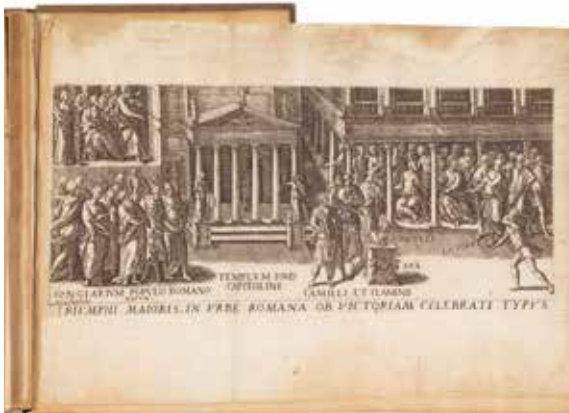 CONGIARIVM POPVLO ROMANO
TEMPLVM IOVIS
CAPITOLINI
ARA
CAMILLI ET FLAMINES
TRIVMPHI MAIORIS IN VRBE ROMANA OB VICTORIAM CELEBRATI TYPVS